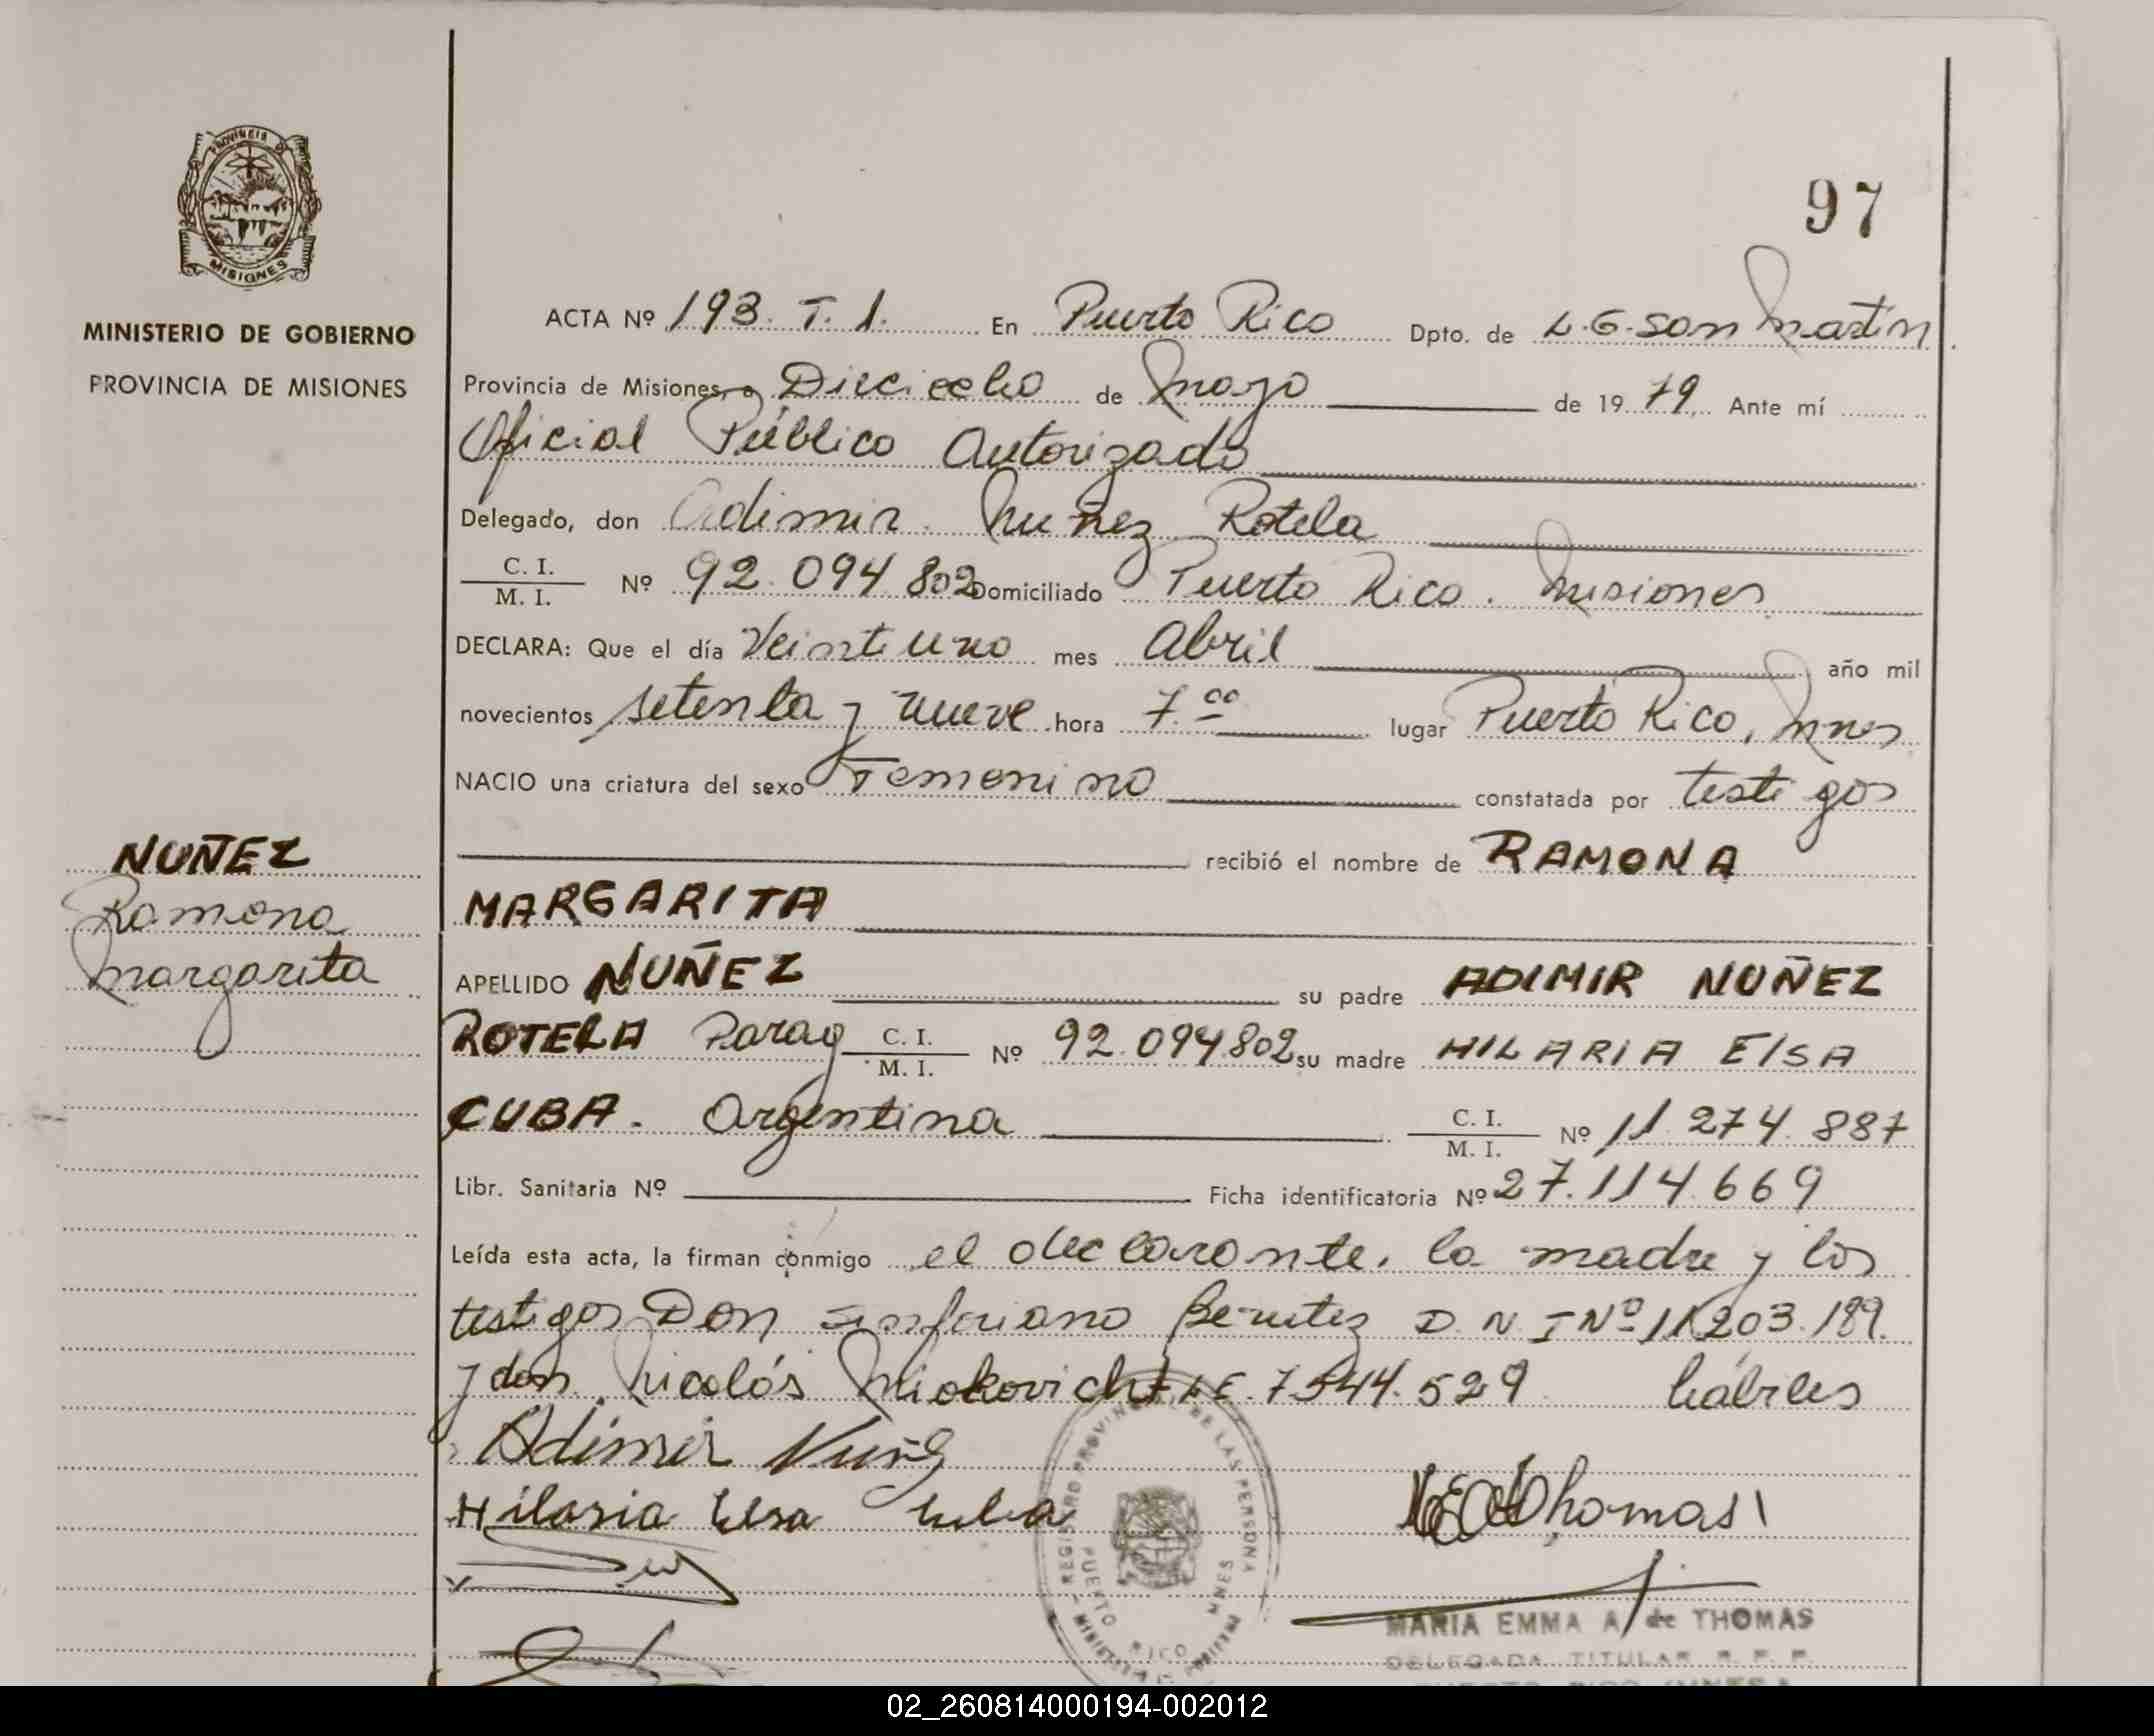 97
PROVINCIA DE
MISIONES
MINISTERIO DE GOBIERNO
PROVINCIA DE MISIONES
ACTA Nº 193. T. 1. En Puerto Rico Dpto. de L.G. San Martín
Provincia de Misiones, a Dieciocho de Mayo de 1979. Ante mí
Oficial Público Autorizado
Delegado, don Adimir Nuñez Rotela
C. I. / M. I. Nº 92.094.802 Domiciliado Puerto Rico. Misiones
DECLARA: Que el día Veintiuno mes Abril año mil
novecientos setenta y nueve hora 7.00 lugar Puerto Rico, Mnes
NACIO una criatura del sexo Femenino constatada por testigos
recibió el nombre de RAMONA
MARGARITA
NUÑEZ
Ramona
Margarita
APELLIDO NUÑEZ su padre ADIMIR NUÑEZ
ROTELA Parag C. I. / M. I. Nº 92.094.802 su madre HILARIA ElSA
CUBA. Argentina C. I. / M. I. Nº 11.274.887
Libr. Sanitaria Nº Ficha identificatoria Nº 27.114.669
Leída esta acta, la firman conmigo el declarante, la madre y los
testigos Don Sinforiano Benitez D.N.I Nº 11.203.189.
y don Nicolás L.E. 7.544.529 hábiles
Adimir Nuñez
Hilaria Elsa Cuba
Thomas
REGISTRO PROVINCIAL DE LAS PERSONAS
PUERTO RICO MNES
MARIA EMMA A. de THOMAS
DELEGADA TITULAR R. P. P.
02_260814000194-002012